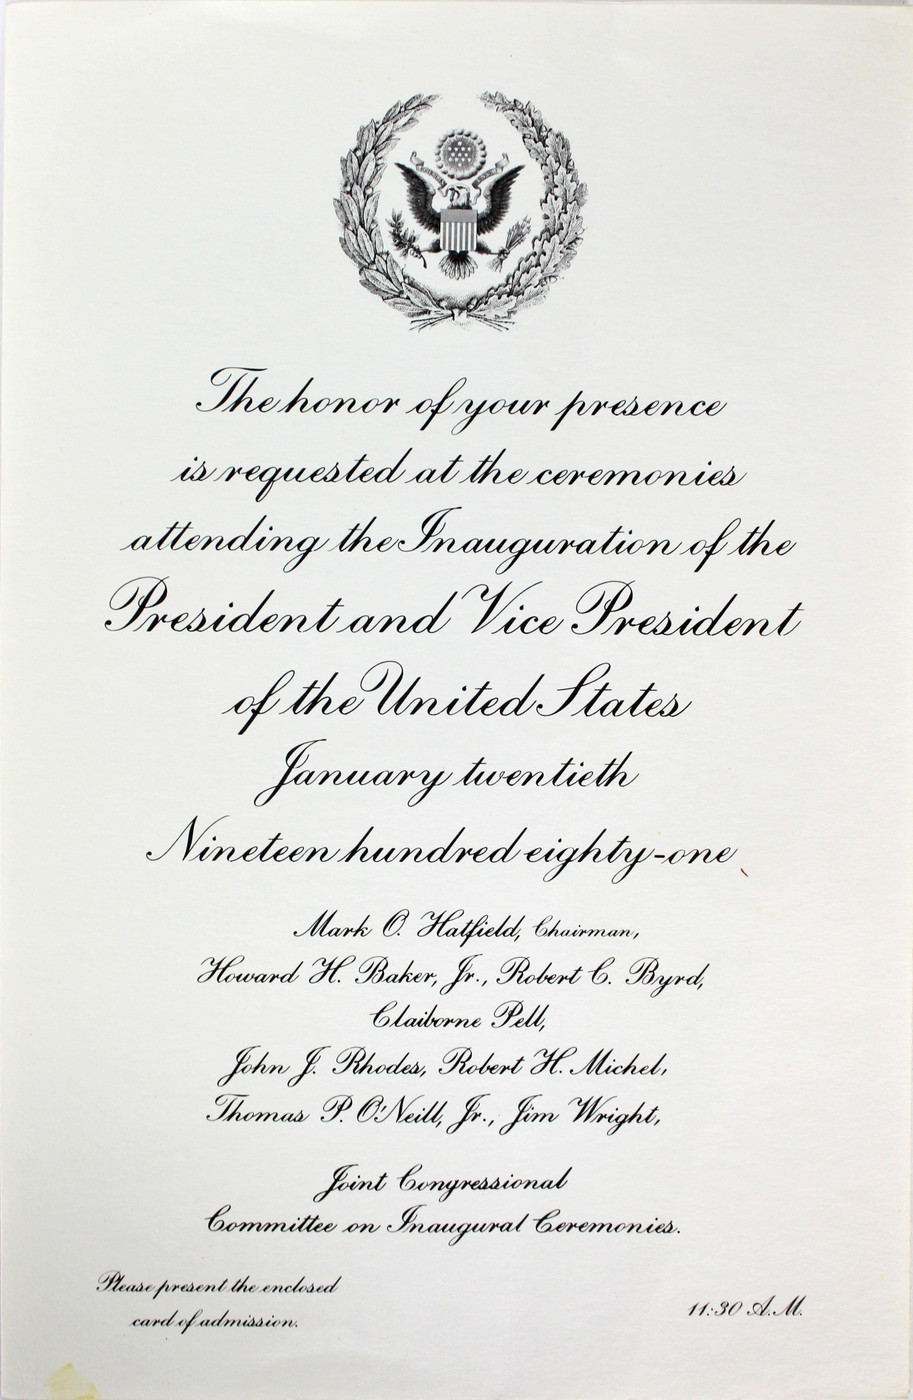 The honor of your presence
is requested at the ceremonies
attending the Inauguration of the
President and Vice President
of the United States
January twentieth
Nineteen hundred eighty-one
Mark O. Hatfield, Chairman,
Howard H. Baker, Jr., Robert C. Byrd,
Claiborne Pell,
John J. Rhodes, Robert H. Michel,
Thomas P. O'Neill, Jr., Jim Wright,
Joint Congressional
Committee on Inaugural Ceremonies.
Please present the enclosed
card of admission.
11:30 A.M.